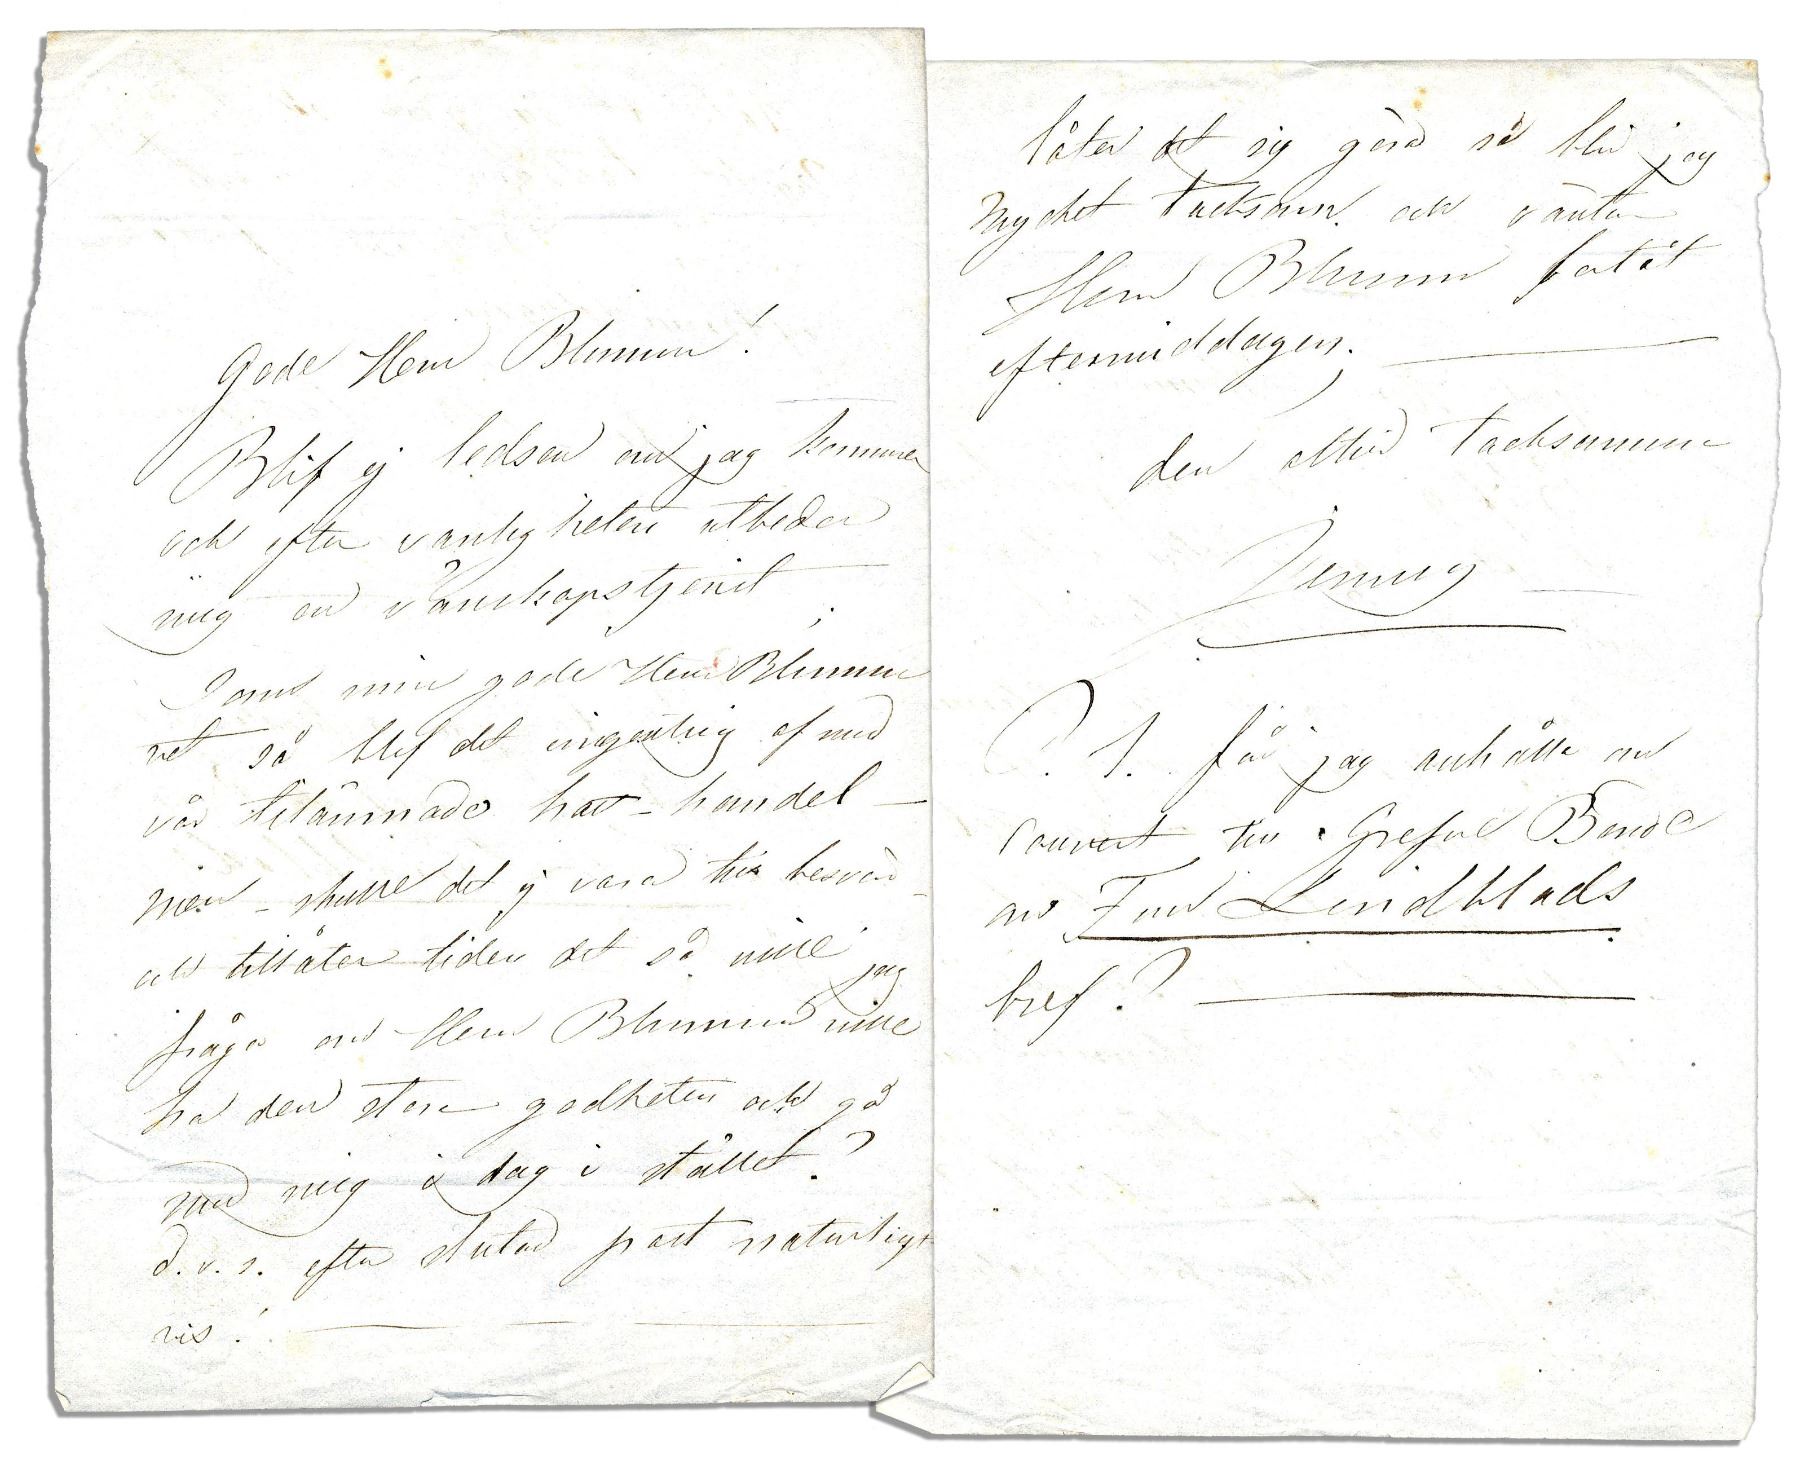 Gode Herr Blumm!
Blif ej ledsen om jag kommer
och efter vanligheten utbeder
mig en vänskapstjenst
Som min gode Herr Blumm
vet så blef det ingenting af med
vår tilämnade hatt-handel —
men – skulle det ej vara till besvär –
och tillåter tiden det så ville jag
fråga om Herr Blumm ville
ha den stora godheten och gå
med mig i dag i stället?
d.v.s. efter slutad post naturligt
vis!
låter det sig göra så blir jag
mycket tacksam och väntar
Herr Blumm fortåt
eftermiddagen.
den alltid tacksamma
Jenny
P.S. får jag anhålla om
couvert till Grefve Bonde
om Fru Lindblads
bref?